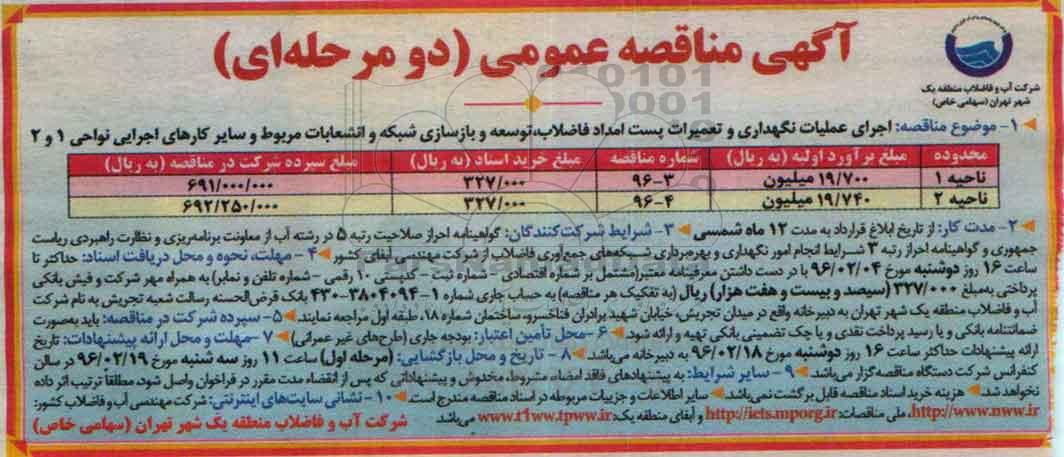 آگهی مناقصه عمومی (دو مرحله‌ای)
شرکت آب و فاضلاب منطقه یک
شهر تهران (سهامی خاص)
۱- موضوع مناقصه: اجرای عملیات نگهداری و تعمیرات پست امداد فاضلاب،توسعه و بازسازی شبکه و انشعابات مربوط و سایر کارهای اجرایی نواحی ۱ و ۲
محدوده مبلغ برآورد اولیه (به ریال) شماره مناقصه مبلغ خرید اسناد (به ریال) مبلغ سپرده شرکت در مناقصه (به ریال)
ناحیه ۱ ۱۹/۷۰۰ میلیون ۹۶-۳ ۳۲۷/۰۰۰ ۶۹۱/۰۰۰/۰۰۰
ناحیه ۲ ۱۹/۷۴۰ میلیون ۹۶-۴ ۳۲۷/۰۰۰ ۶۹۲/۲۵۰/۰۰۰
۲- مدت کار: از تاریخ ابلاغ قرارداد به مدت ۱۲ ماه شمسی ۳- شرایط شرکت‌کنندگان: گواهینامه احراز صلاحیت رتبه ۵ در رشته آب از معاونت برنامه‌ریزی و نظارت راهبردی ریاست
جمهوری و گواهینامه احراز رتبه ۳ شرایط انجام امور نگهداری و بهره‌برداری شبکه‌های جمع‌آوری فاضلاب از شرکت مهندسی آبفای کشور ۴- مهلت، نحوه و محل دریافت اسناد: حداکثر تا
ساعت ۱۶ روز دوشنبه مورخ ۹۶/۰۲/۰۴ با در دست داشتن معرفینامه معتبر(مشتمل بر شماره اقتصادی - شماره ثبت - کدپستی ۱۰ رقمی - شماره تلفن و نمابر) به همراه مهر شرکت و فیش بانکی
پرداختی به‌مبلغ ۳۲۷/۰۰۰ (سیصد و بیست و هفت هزار) ریال (به تفکیک هر مناقصه) به حساب جاری شماره ۱-۳۸۰۴۰۹۴-۴۳۰ بانک قرض‌الحسنه رسالت شعبه تجریش به نام شرکت
آب و فاضلاب منطقه یک شهر تهران به دبیرخانه واقع در میدان تجریش، خیابان شهید برادران فناخسرو، ساختمان شماره ۱۸، طبقه اول مراجعه نمایند. ۵- سپرده شرکت در مناقصه: باید به‌صورت
ضمانتنامه بانکی و یا رسید پرداخت نقدی و یا چک تضمینی بانکی تهیه و ارائه شود. ۶-محل تأمین اعتبار: بودجه جاری (طرح‌های غیر عمرانی) ۷-مهلت و محل ارائه پیشنهادات: تاریخ
ارائه پیشنهادات حداکثر ساعت ۱۶ روز دوشنبه مورخ ۹۶/۰۲/۱۸ به دبیرخانه می‌باشد. ۸- تاریخ و محل بازگشایی: (مرحله اول) ساعت ۱۱ روز سه شنبه مورخ ۹۶/۰۲/۱۹ در سالن
کنفرانس شرکت دستگاه مناقصه‌گزار می‌باشد. ۹- سایر شرایط: به پیشنهادهای فاقد امضاء، مشروط، مخدوش و پیشنهاداتی که پس از انقضاء مدت مقرر در فراخوان واصل شود، مطلقاً ترتیب اثر داده
نخواهد شد. هزینه خرید اسناد مناقصه قابل برگشت نمی‌باشد. سایر اطلاعات و جزییات مربوطه در اسناد مناقصه مندرج است. ۱۰- نشانی سایت‌های اینترنتی: شرکت مهندسی آب و فاضلاب کشور:
http://www.nww.ir، ملی مناقصات: http://iets.mporg.ir و آبفای منطقه یک: www.t1ww.tpww.ir می‌باشد
شرکت آب و فاضلاب منطقه یک شهر تهران (سهامی خاص)